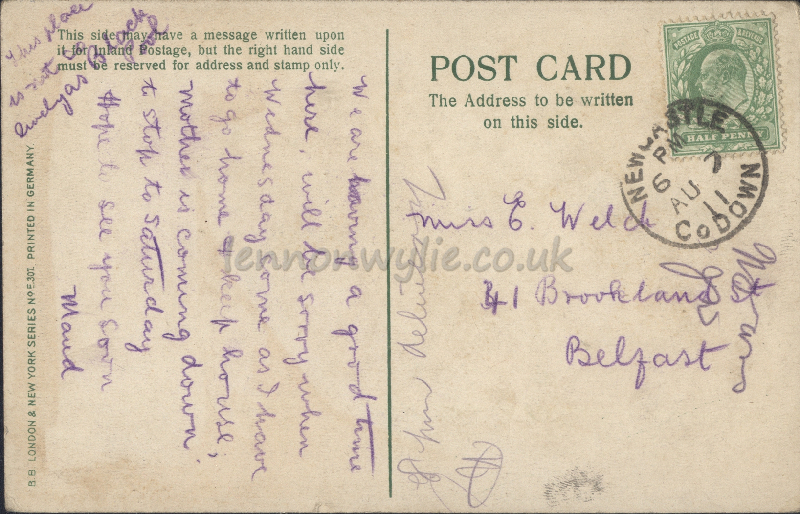 This side may have a message written upon
it for Inland Postage, but the right hand side
must be reserved for address and stamp only.
This place
is not
as Black
pool
We are having a good time
here, will be sorry when
Wednesday come as I have
to go home & keep house,
mother is coming down
to stop to Saturday
Hope to see you soon
Maud
B.B. LONDON & NEW YORK SERIES No E.301. PRINTED IN GERMANY.
POST CARD
The Address to be written
on this side.
POSTAGE REVENUE
HALF PENNY
NEWCASTLE
PM
6
AU 7
11
Co DOWN
Miss E. Welch
41 Brookland St
Belfast
lennonwylie.co.uk